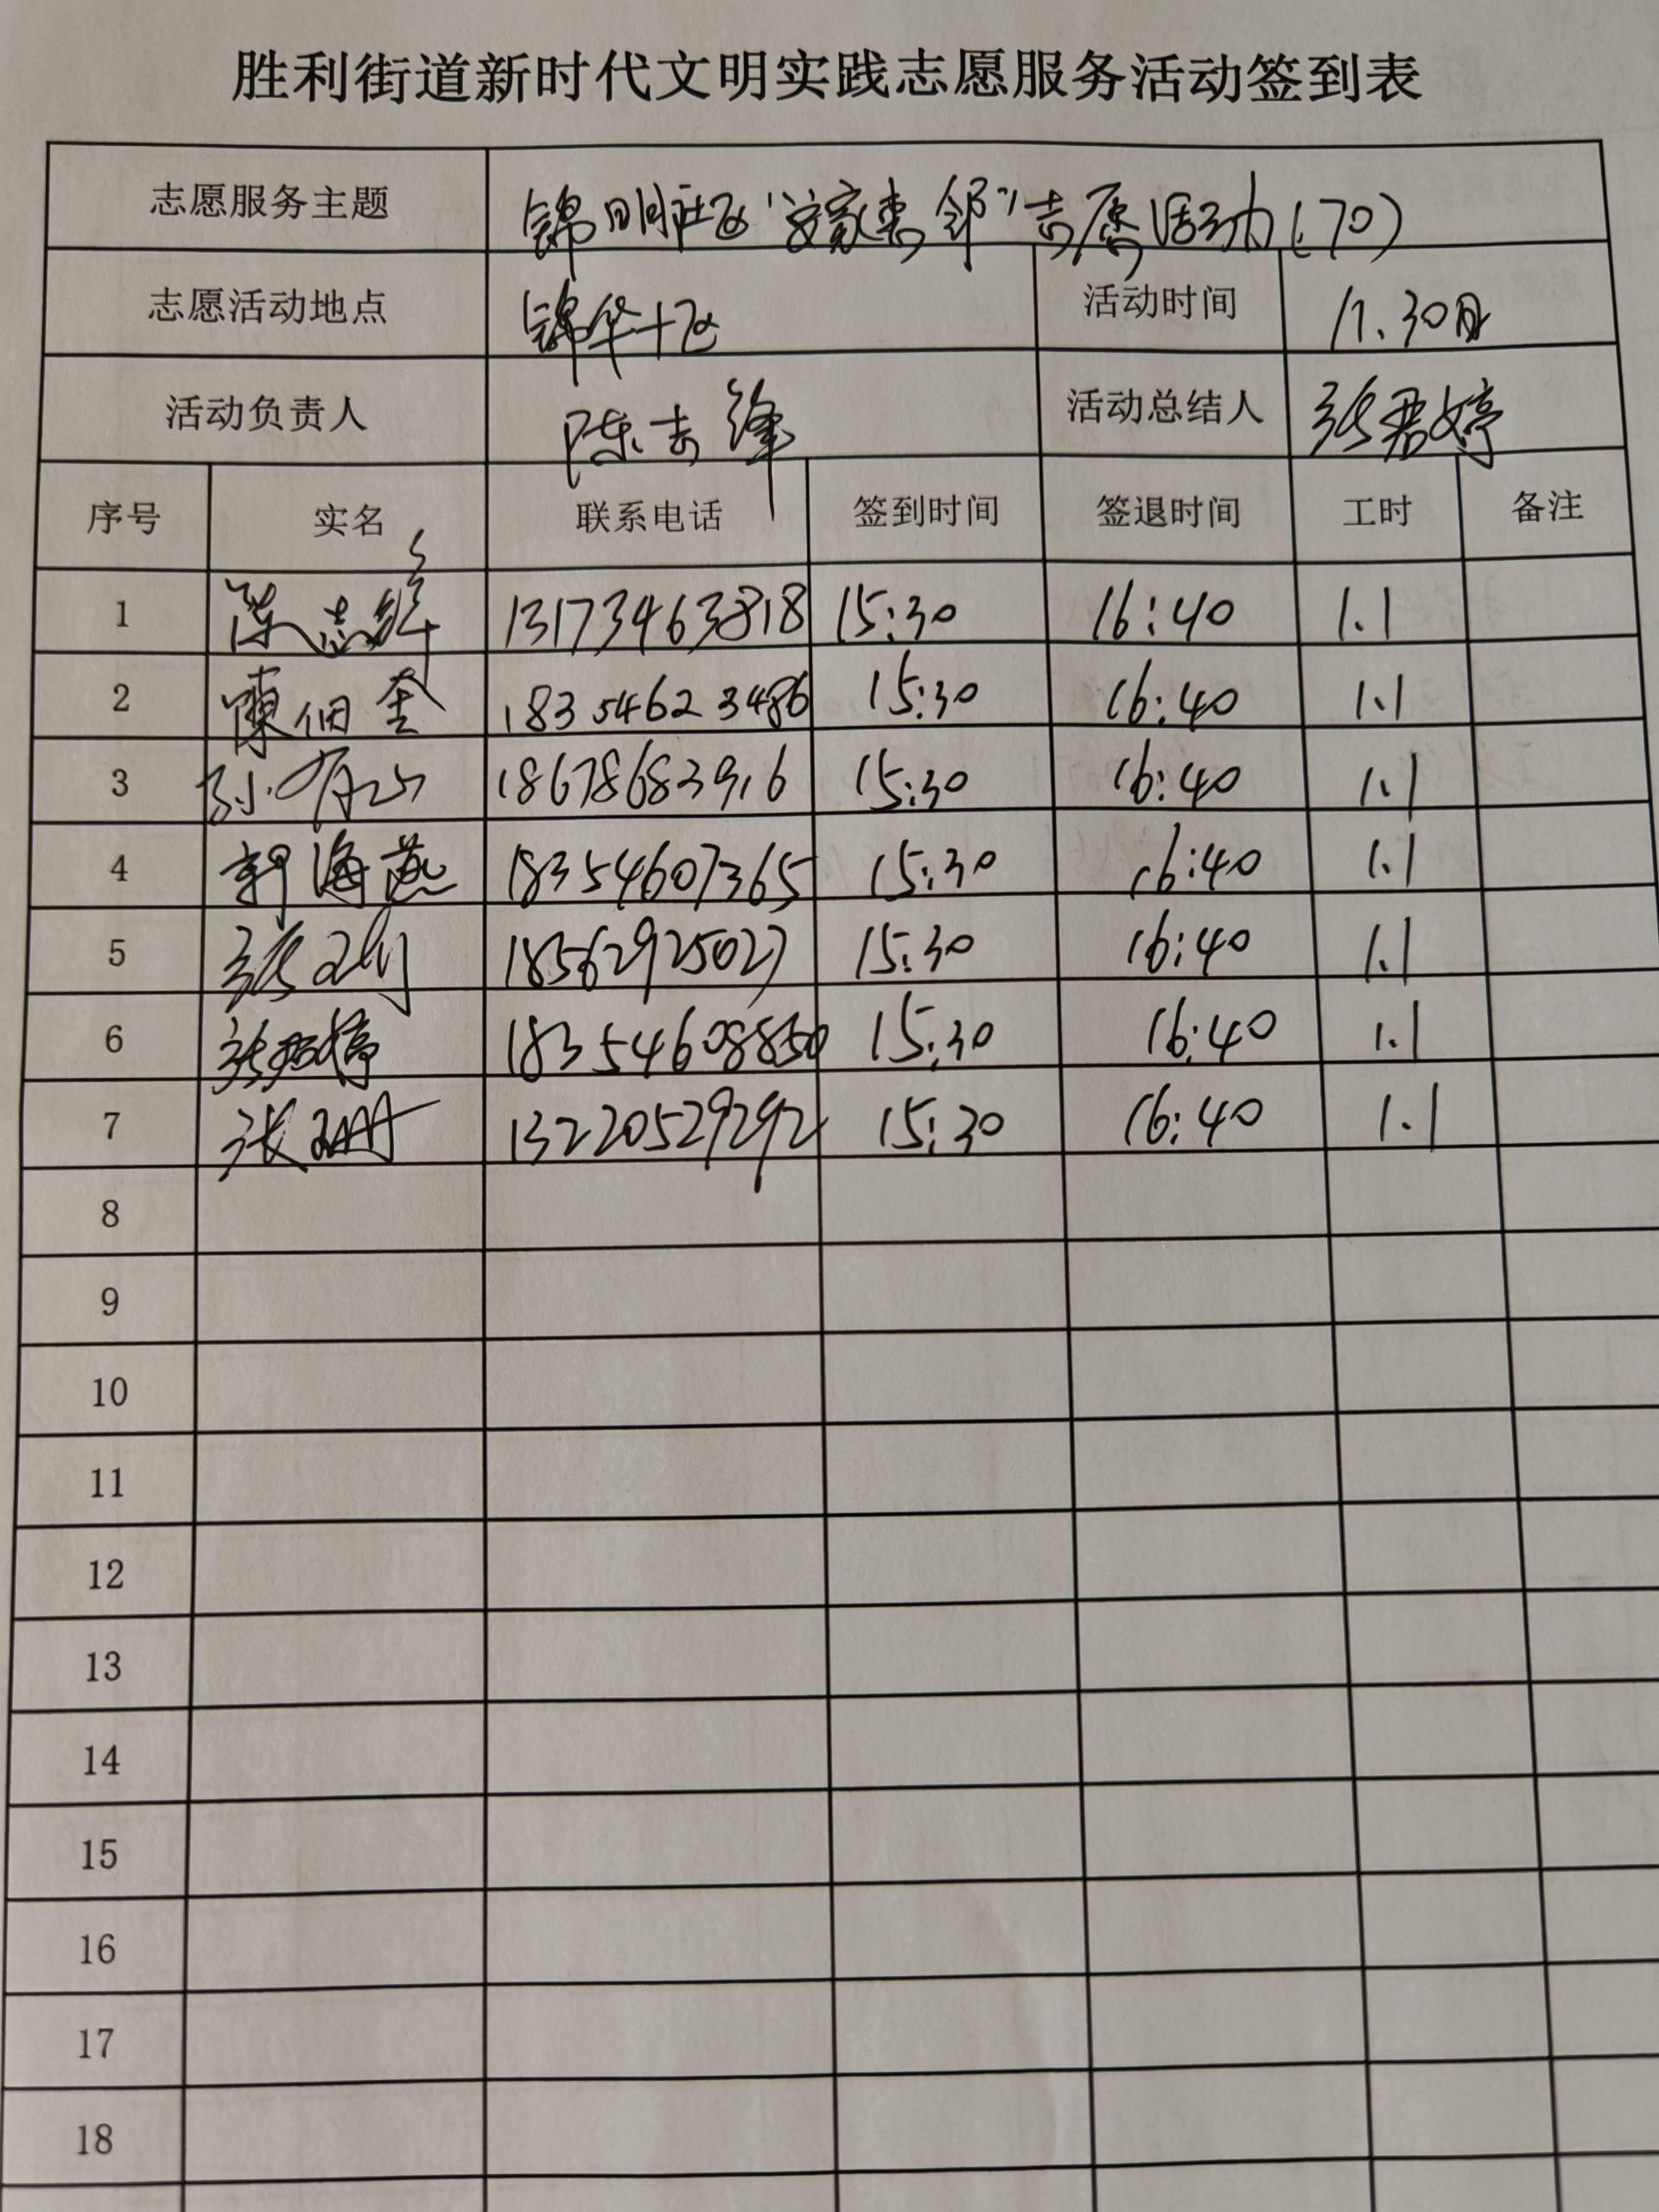 胜利街道新时代文明实践志愿服务活动签到表
志愿服务主题 锦明社区"安家惠邻"志愿活动(70)
志愿活动地点 锦华十区 活动时间 11.30日
活动负责人 陈志锋 活动总结人 张君婷
序号 实名 联系电话 签到时间 签退时间 工时 备注
1 陈志锋 13173463818 15:30 16:40 1.1
2 陳佃奎 18354623486 15:30 16:40 1.1
3 孙 18678683916 15:30 16:40 1.1
4 郭海燕 18354607365 15:30 16:40 1.1
5 张 18562925027 15:30 16:40 1.1
6 张君婷 18354608850 15:30 16:40 1.1
7 张珊 13220529292 15:30 16:40 1.1
8
9
10
11
12
13
14
15
16
17
18